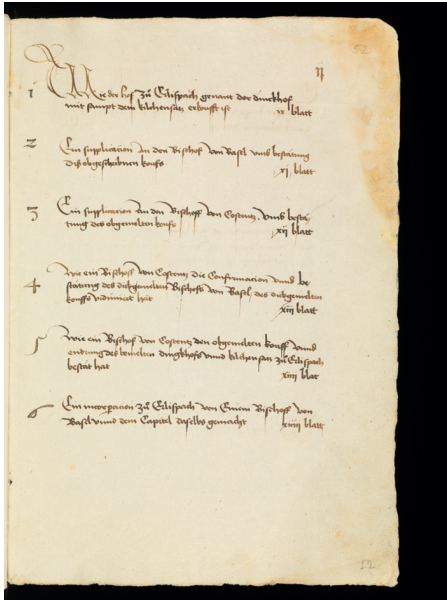 52
ij
1 Wie der hof zů Eilispach genant der dinckhof
mit sampt dem kilchensatz erkoufft ist ix blatt
2 Ein supplication an den Bischof von Basel vmb bestätung
diß obgeschribnen koufs xj blatt
3 Ein supplication an den Bischoff von Costentz, vmb bestä-
tung des obgemelten koufs xij blatt
4 Wie ein Bischoff von Costentz die Confirmacion vnnd be
statung des dickgemelten Bischofs von Basel, des dickgemelten
kouffs vidimiert hat xiij blatt
5 Wie ein Bischof von Costentz den obgemelten kouff vnnd
des dinghofs vnnd kilchensatz zů Eilispach
bestät hat xiiij blat
6 Ein incorporacion zů Eilispach von Einem Bischoff von
Basel vnnd dem Capitel daselbs gemacht xiiij blatt
52